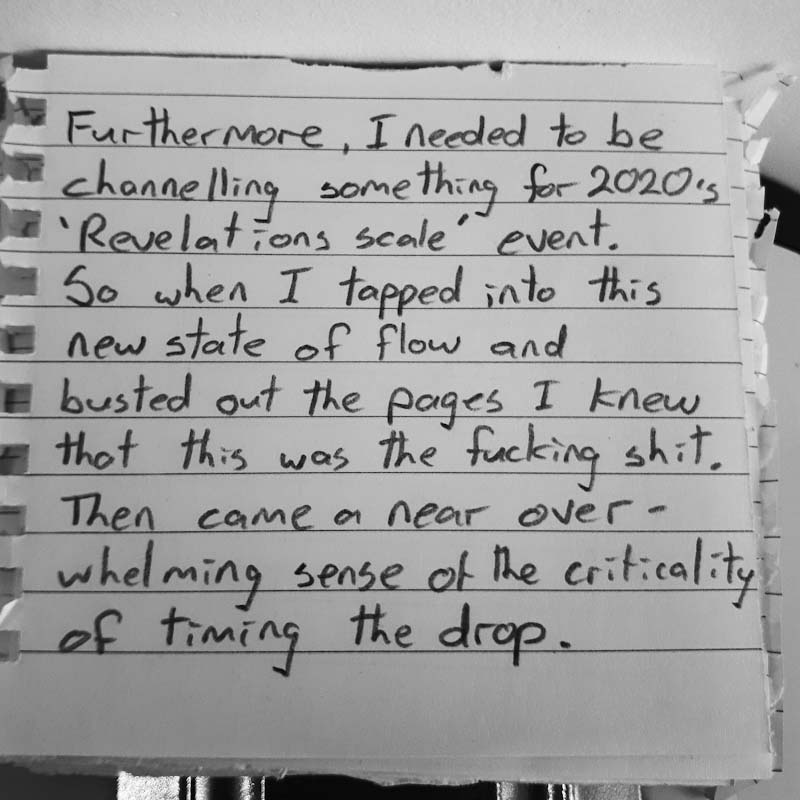 Furthermore, I needed to be
channelling something for 2020's
'Revelations scale' event.
So when I tapped into this
new state of flow and
busted out the pages I knew
that this was the fucking shit.
Then came a near over-
whelming sense of the criticality
of timing the drop.